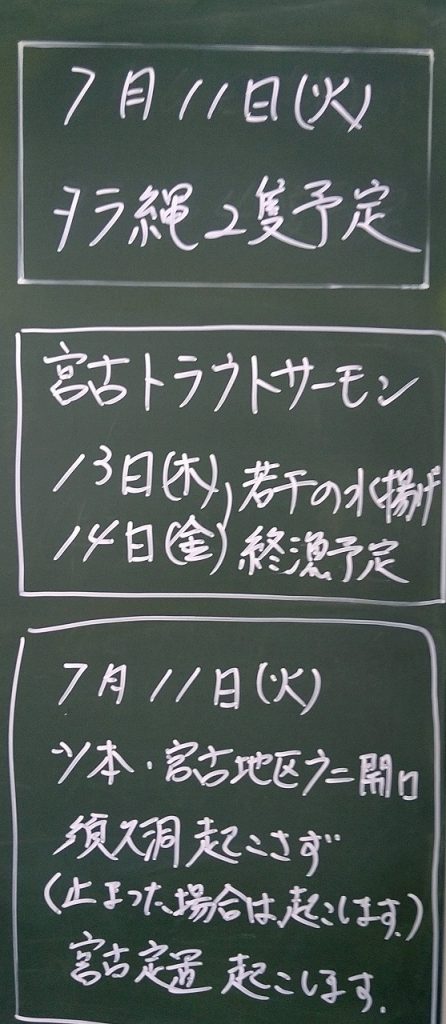 7月11日(火)
タラ縄2隻予定
宮古トラウトサーモン
13日(木),若干の水揚げ
14日(金)終漁予定
7月11日(火)
ツ本・宮古地区ウニ開口
須久洞起こさず
(止まった場合は、起こします。)
宮古定置 起こします.